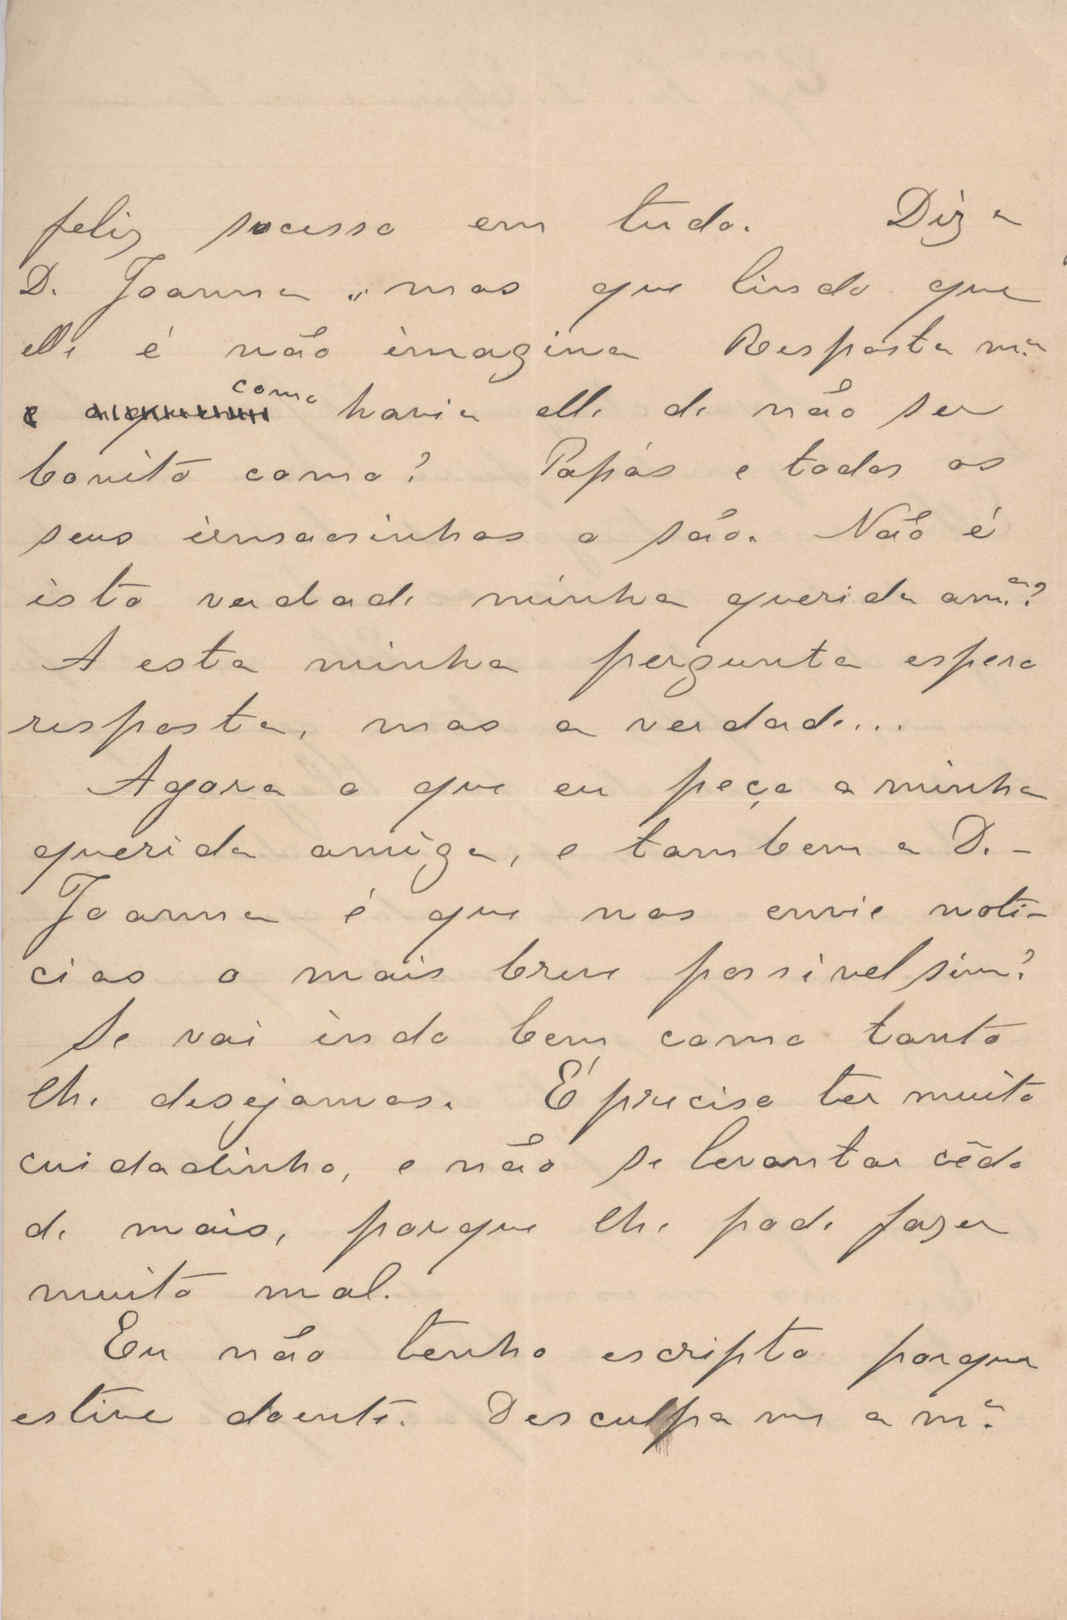 feliz sucesso em tudo. Diz a
D. Joanna „ mas que lindo que
elle é não imagina Resposta m.ª
como havia elle de não ser
bonito como? Papás e todos os
seus irmaosinhos o são. Não é
isto verdade minha querida am.ª?
A esta minha pergunta espero
resposta, mas a verdade...
Agora o que eu peço a minha
querida amiga, e tambem a D. -
Joanna é que nos envie noti-
cias o mais breve possivel sim?
Se vai indo bem como tanto
lhe desejamos. É preciso ter muito
cuidadinho, e não se levantar cêdo
de mais, porque lhe pode fazer
muito mal.
Eu não tenho escripto porque
estive doente. Desculpa me a m.ª